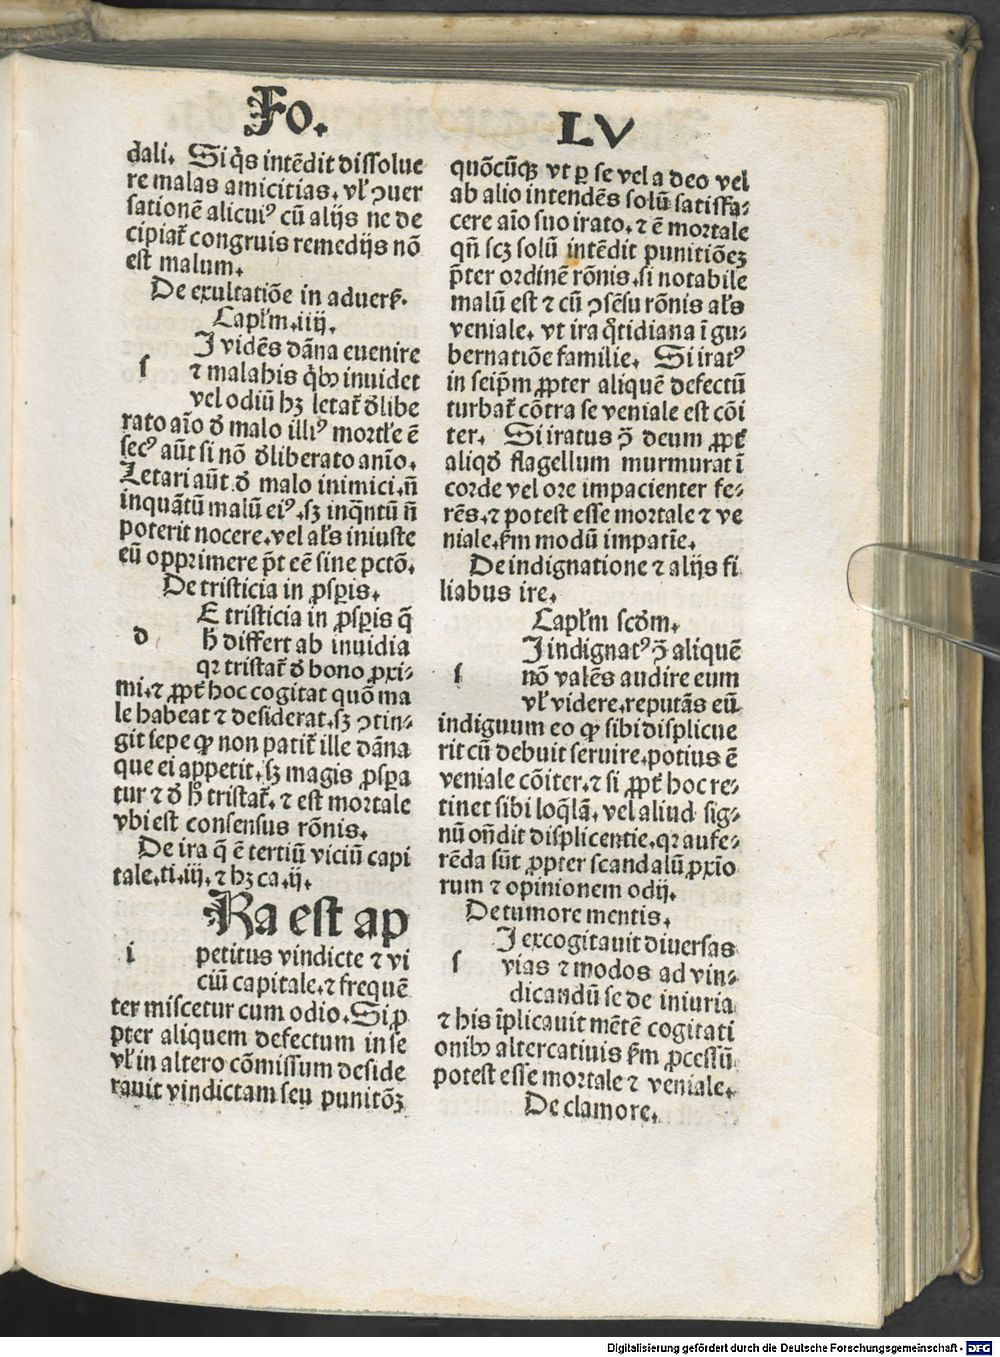 Fo. LV
dali. Si q̃s intẽdit dissolue
re malas amicitias. vł ꝯuer
sationẽ alicuiꝰ cũ alijs ne de
cipiat̃ congruis remedijs nõ
est malum.
De exultatiõe in aduerſ.
Capĺm .iiij.
I vidẽs dãna euenire
s ⁊ mala his q̃bꝫ inuidet
vel odiũ hꝫ letat̃ ð libe
rato aĩo ð malo illiꝰ mortĺe ẽ
secꝰ aũt si nõ ðliberato anĩo.
Letari aũt ð malo inimici .ñ
inquãtũ malũ eiꝰ .sꝫ inq̃ntũ ñ
poterit nocere. vel aĺs iniuste
eũ opprimere p̃t eẽ sine pctõ.
De tristicia in ꝓsꝑis.
E tristicia in ꝓsꝑis q̃
d h̃ differt ab inuidia
qꝛ tristat̃ ð bono ꝓxi
mi. ⁊ ꝓpt̃ hoc cogitat quõ ma
le habeat ⁊ desiderat. sꝫ ꝯtin⸗
git sepe ꝙ non patit̃ ille dãna
que ei appetit. sꝫ magis ꝓsꝑa
tur ⁊ ð h̃ tristat̃. ⁊ est mortale
vbi est consensus rõnis.
De ira q̃ ẽ tertiũ viciũ capi
tale. ti. iij. ⁊ hꝫ ca. ij.
Ra est ap
i petitus vindicte ⁊ vi
ciũ capitale. ⁊ frequẽ
ter miscetur cum odio. Si ꝓ
pter aliquem defectum in se
vł in altero cõmissum deside
rauit vindictam seu punitõꝫ
quõcũqꝫ vt ꝑ se vel a deo vel
ab alio intendẽs solũ satisfa⸗
cere aĩo suo irato. ⁊ ẽ mortale
qñ scꝫ solũ intẽdit punitiõeꝫ
p̃ter ordinẽ rõnis. si notabile
malũ est ⁊ cũ ꝯsẽsu rõnis aĺs
veniale. vt ira q̃tidiana ĩ gu⸗
bernatiõe familie. Si iratꝰ
in seip̃m ꝓpter aliquẽ defectũ
turbat̃ cõtra se veniale est cõi
ter. Si iratus ꝯ̃ deum ꝓpt̃
aliqð flagellum murmurat ĩ
corde vel ore impacienter fe⸗
rẽs. ⁊ potest esse mortale ⁊ ve
niale. ẜm modũ impatiẽ.
De indignatione ⁊ alijs fi
liabus ire.
Capĺm scðm.
I indignatꝰ ꝯ̃ aliquẽ
s nõ valẽs audire eum
vł videre. reputãs eũ
indiguum eo ꝙ sibi displicue
rit cũ debuit seruire. potius ẽ
veniale cõiter. ⁊ si ꝓpt̃ hoc re⸗
tinet sibi loq̃lã. vel aliud sig⸗
nũ oñdit displicentie. qꝛ aufe⸗
rẽda sũt ꝓpter scandalũ ꝓxĩo
rum ⁊ opinionem odij.
De tumore mentis.
I excogitauit diuersas
s vias ⁊ modos ad vin⸗
dicandũ se de iniuria
⁊ his ĩplicauit mẽtẽ cogitati
onibꝫ altercatiuis ẜm ꝓcessũ
potest esse mortale ⁊ veniale.
De clamore.
Digitalisierung gefördert durch die Deutsche Forschungsgemeinschaft - DFG